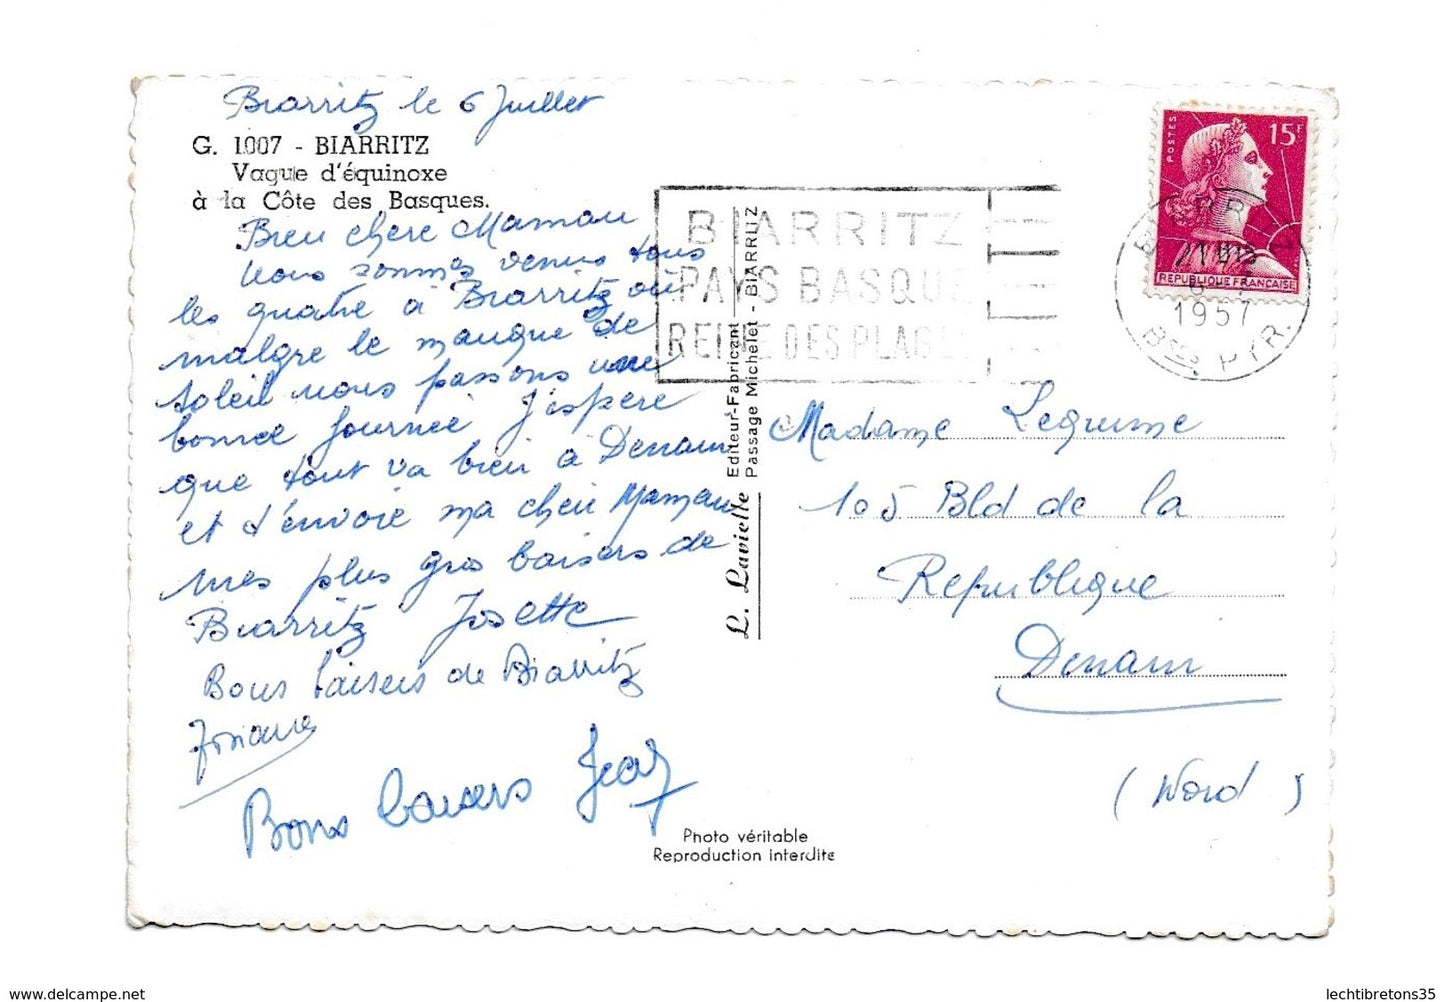 Biarritz le 6 Juillet
G. 1007 - BIARRITZ
Vague d'équinoxe
à la Côte des Basques.
Bien chere Maman
Nous sommes venus tous
les quatre à Biarritz où
malgre le manque de
soleil nous passons une
bonne journée J'espère
que tout va bien à Denain
et t'envoie ma cheri Maman
mes plus gros baisers de
Biarritz Josette
Bons baisers de Biarritz
Josiane
Bons baisers
L. Lavielle Editeur-Fabricant
Passage Michelet - BIARRITZ
Photo véritable
Reproduction interdite
BIARRITZ
PAYS BASQUE
REINE DES PLAGES
POSTES
15F
REPUBLIQUE FRANÇAISE
1957
Bses PYR.
Madame Legrume
105 Bld de la
Republique
Denain
(Nord)
lechtibretons35